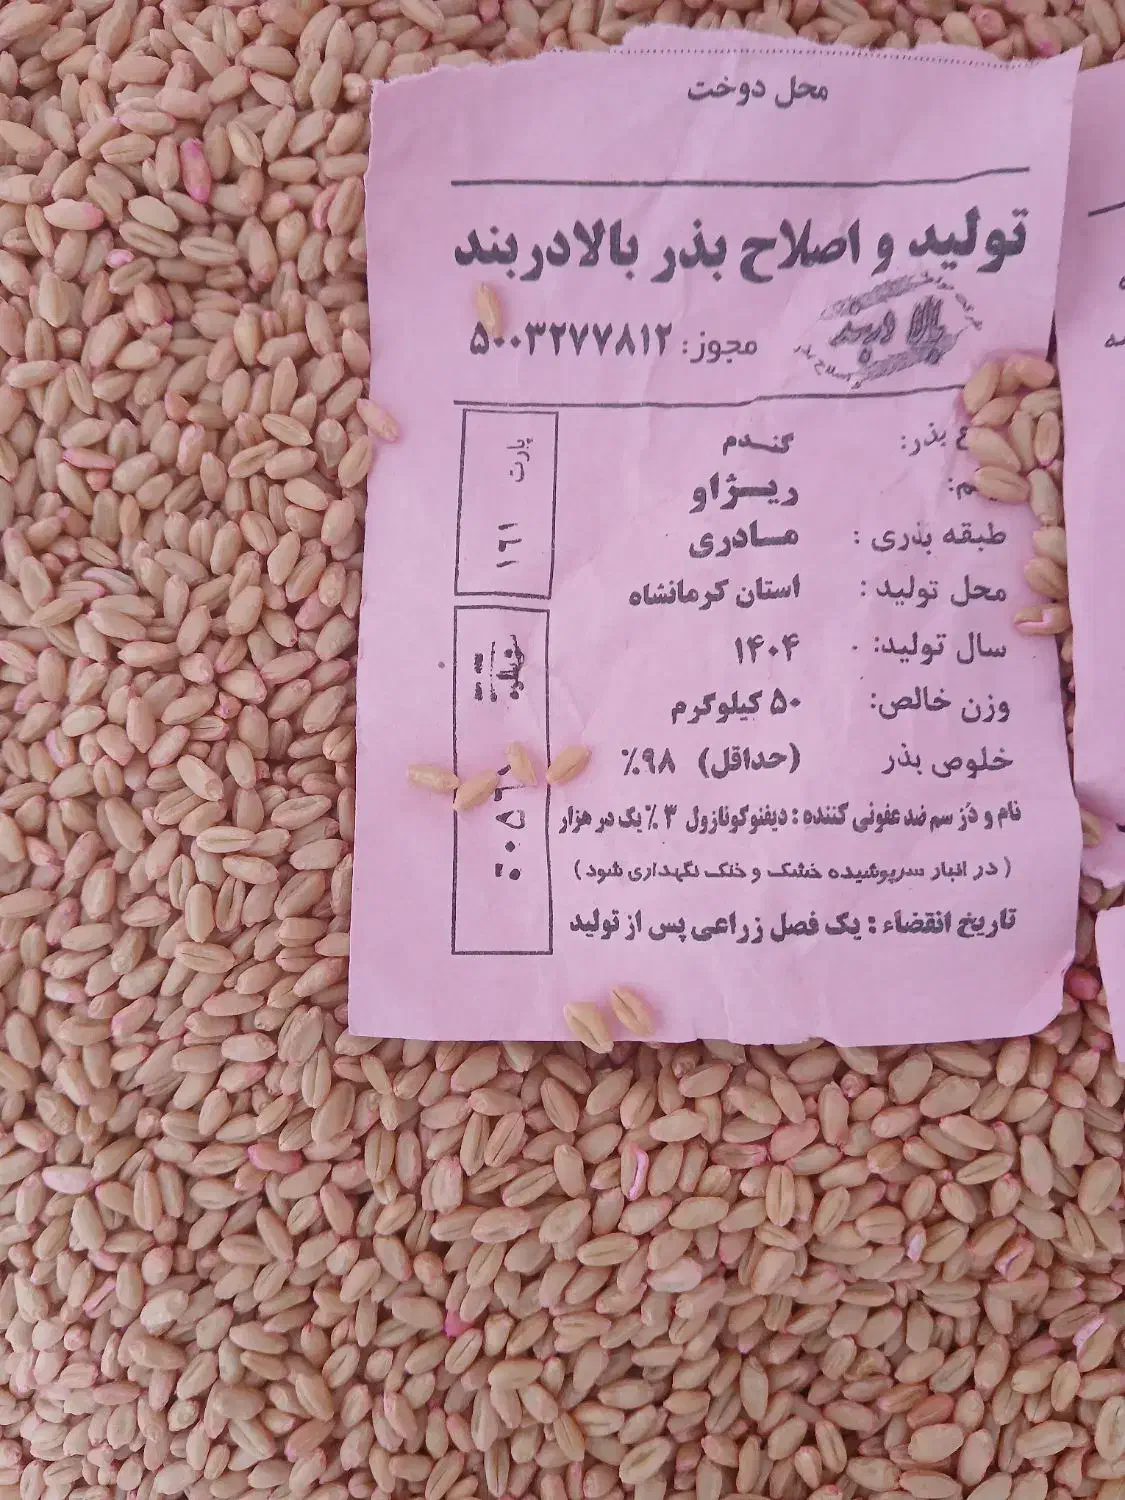 محل دوخت
تولید و اصلاح بذر بالادربند
مجوز: ۵۰۰۳۲۷۷۸۱۲
بالا دربند
بذر: گندم
ریـژاو
طبقه بذری : مـادری
محل تولید : استان کرمانشاه
سال تولید: ۱۴۰۴
وزن خالص: ۵۰ کیلوگرم
خلوص بذر (حداقل) ۹۸٪
نام و دُز سم ضدعفونی کننده : دیفنوکونازول ۳ ٪ یک در هزار
( در انبار سرپوشیده خشک و خنک نگهداری شود )
تاریخ انقضاء : یک فصل زراعی پس از تولید
پارت ۱۶۱